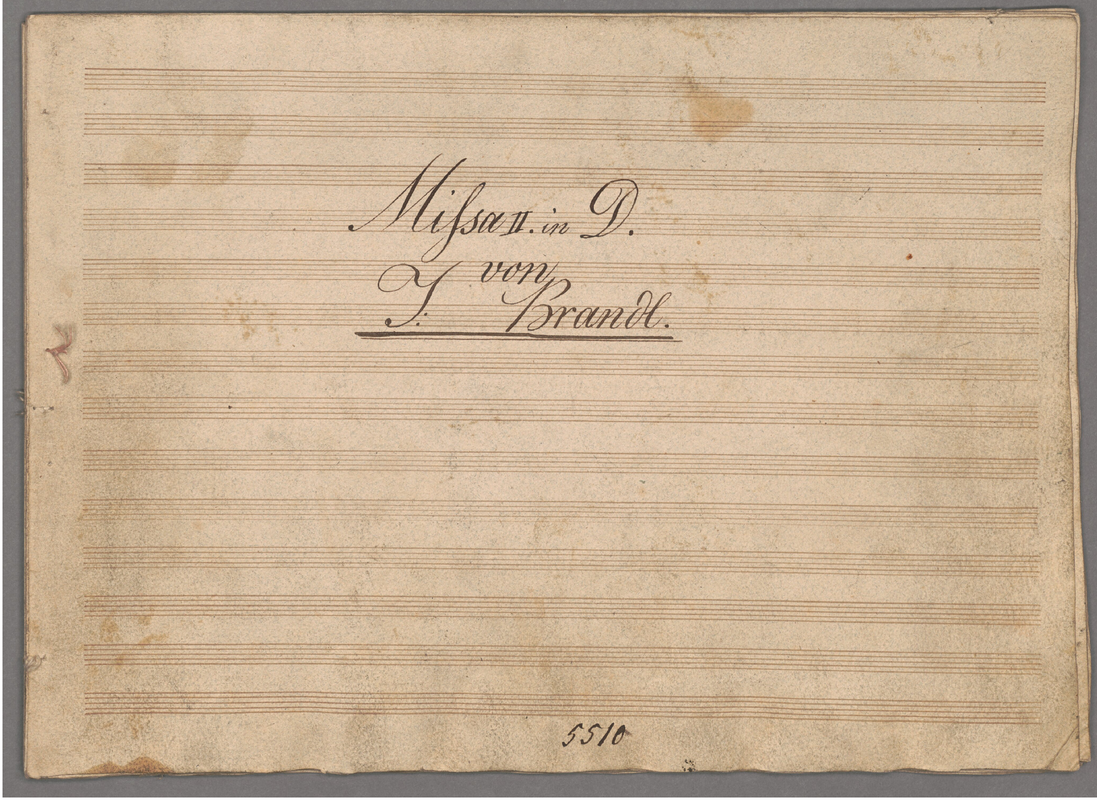 Missa II. in D.
von
J: Brandl.
5510